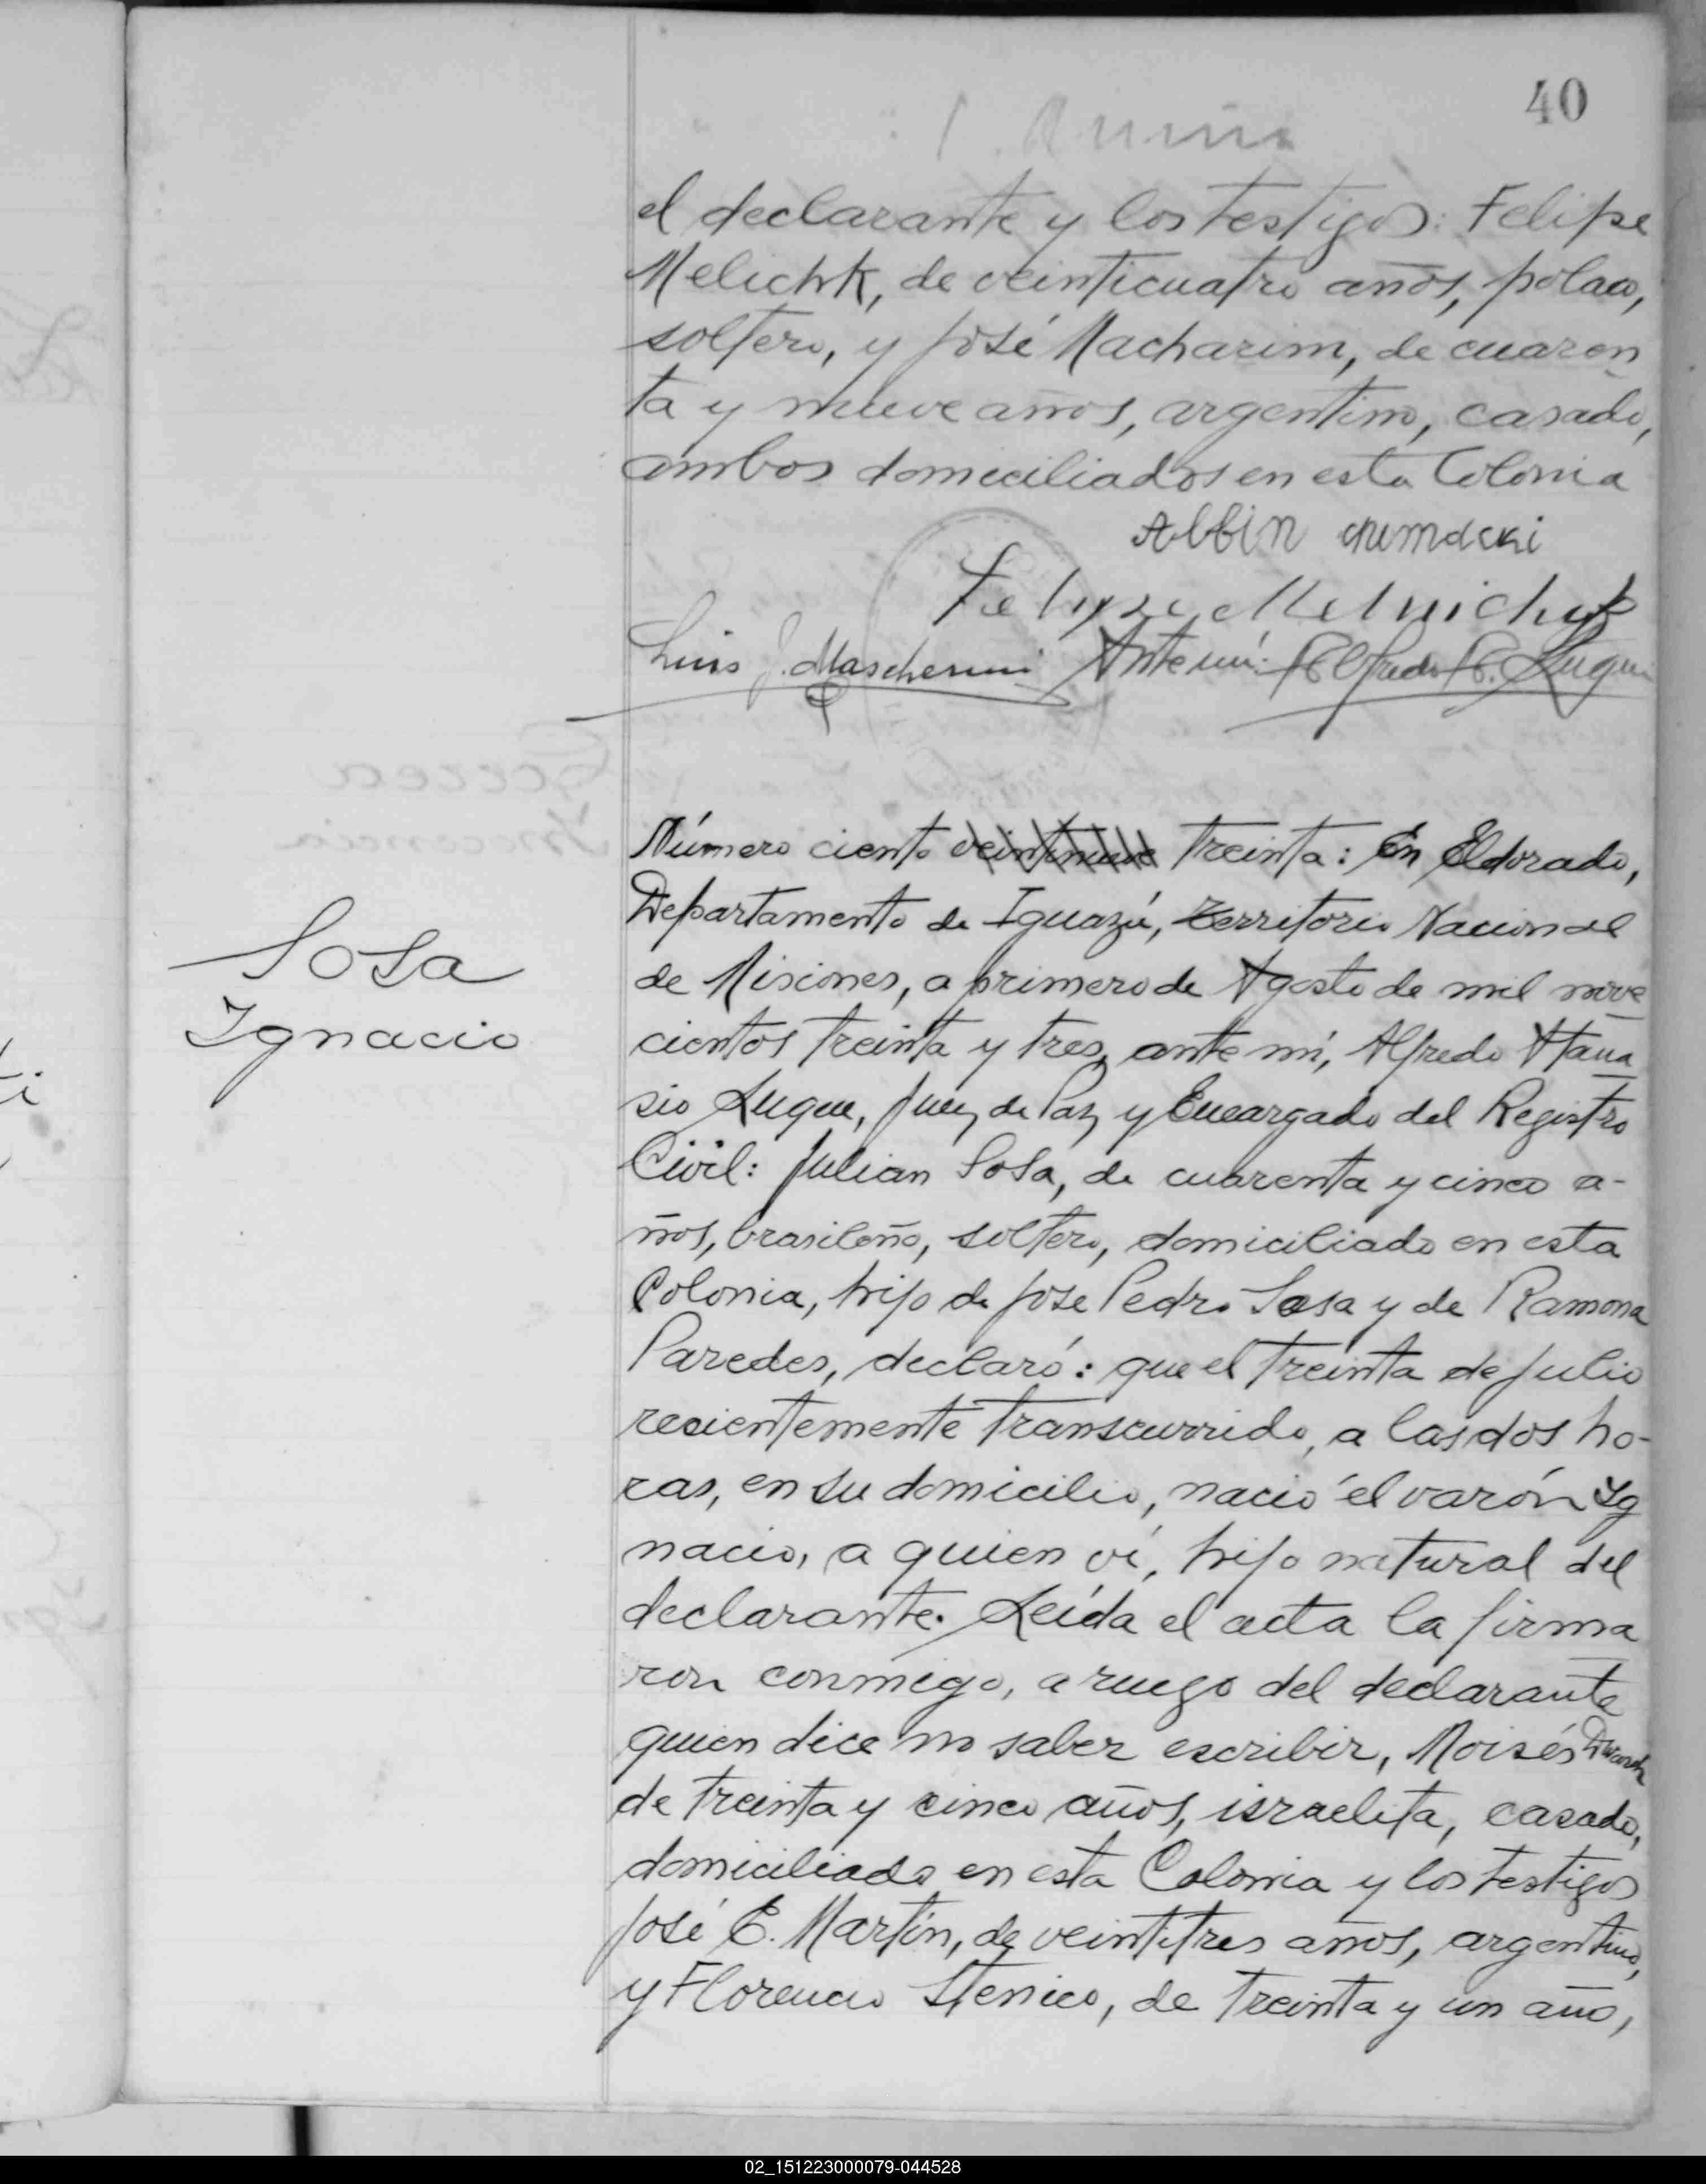 40
el declarante y los testigos: Felipe
Melichk, de veinticuatro años, polaco,
soltero, y José Macharini, de cuaren
ta y nueve años, argentino, casado,
ambos domiciliados en esta Colonia
Albin
Felipe Melnichuk
Luis J. Mascherini Ante mí: Alfredo A. Luque
Número ciento veintinueve treinta: En Eldorado,
Departamento de Iguazú, Territorio Nacional
de Misiones, a primero de Agosto de mil nove
cientos treinta y tres, ante mí, Alfredo Atana
sio Luque, Juez de Paz y Encargado del Registro
Civil: Julian Sosa, de cuarenta y cinco a-
ños, brasileño, soltero, domiciliado en esta
Colonia, hijo de Jose Pedro Sosa y de Ramona
Paredes, declaró: que el treinta de Julio
recientemente transcurrido, a las dos ho-
ras, en su domicilio, nació el varón Ig
nacio, a quien ví, hijo natural del
declarante. Leída el acta la firma
ron conmigo, a ruego del declarante
quien dice no saber escribir, Moisés
de treinta y cinco años, israelita, casado,
domiciliado en esta Colonia y los testigos
José E. Martín, de veintitres años, argentino,
y Florencio Stenico, de treinta y un año,
Sosa
Ignacio
02_151223000079-044528